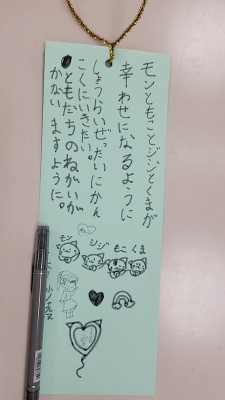 モンともことジジとくまが
幸わせになるように
しょうらいぜったいにかん
こくにいきたい。
ともだちのねがいが
かないますように。
モン
ジジ
もこ
くま